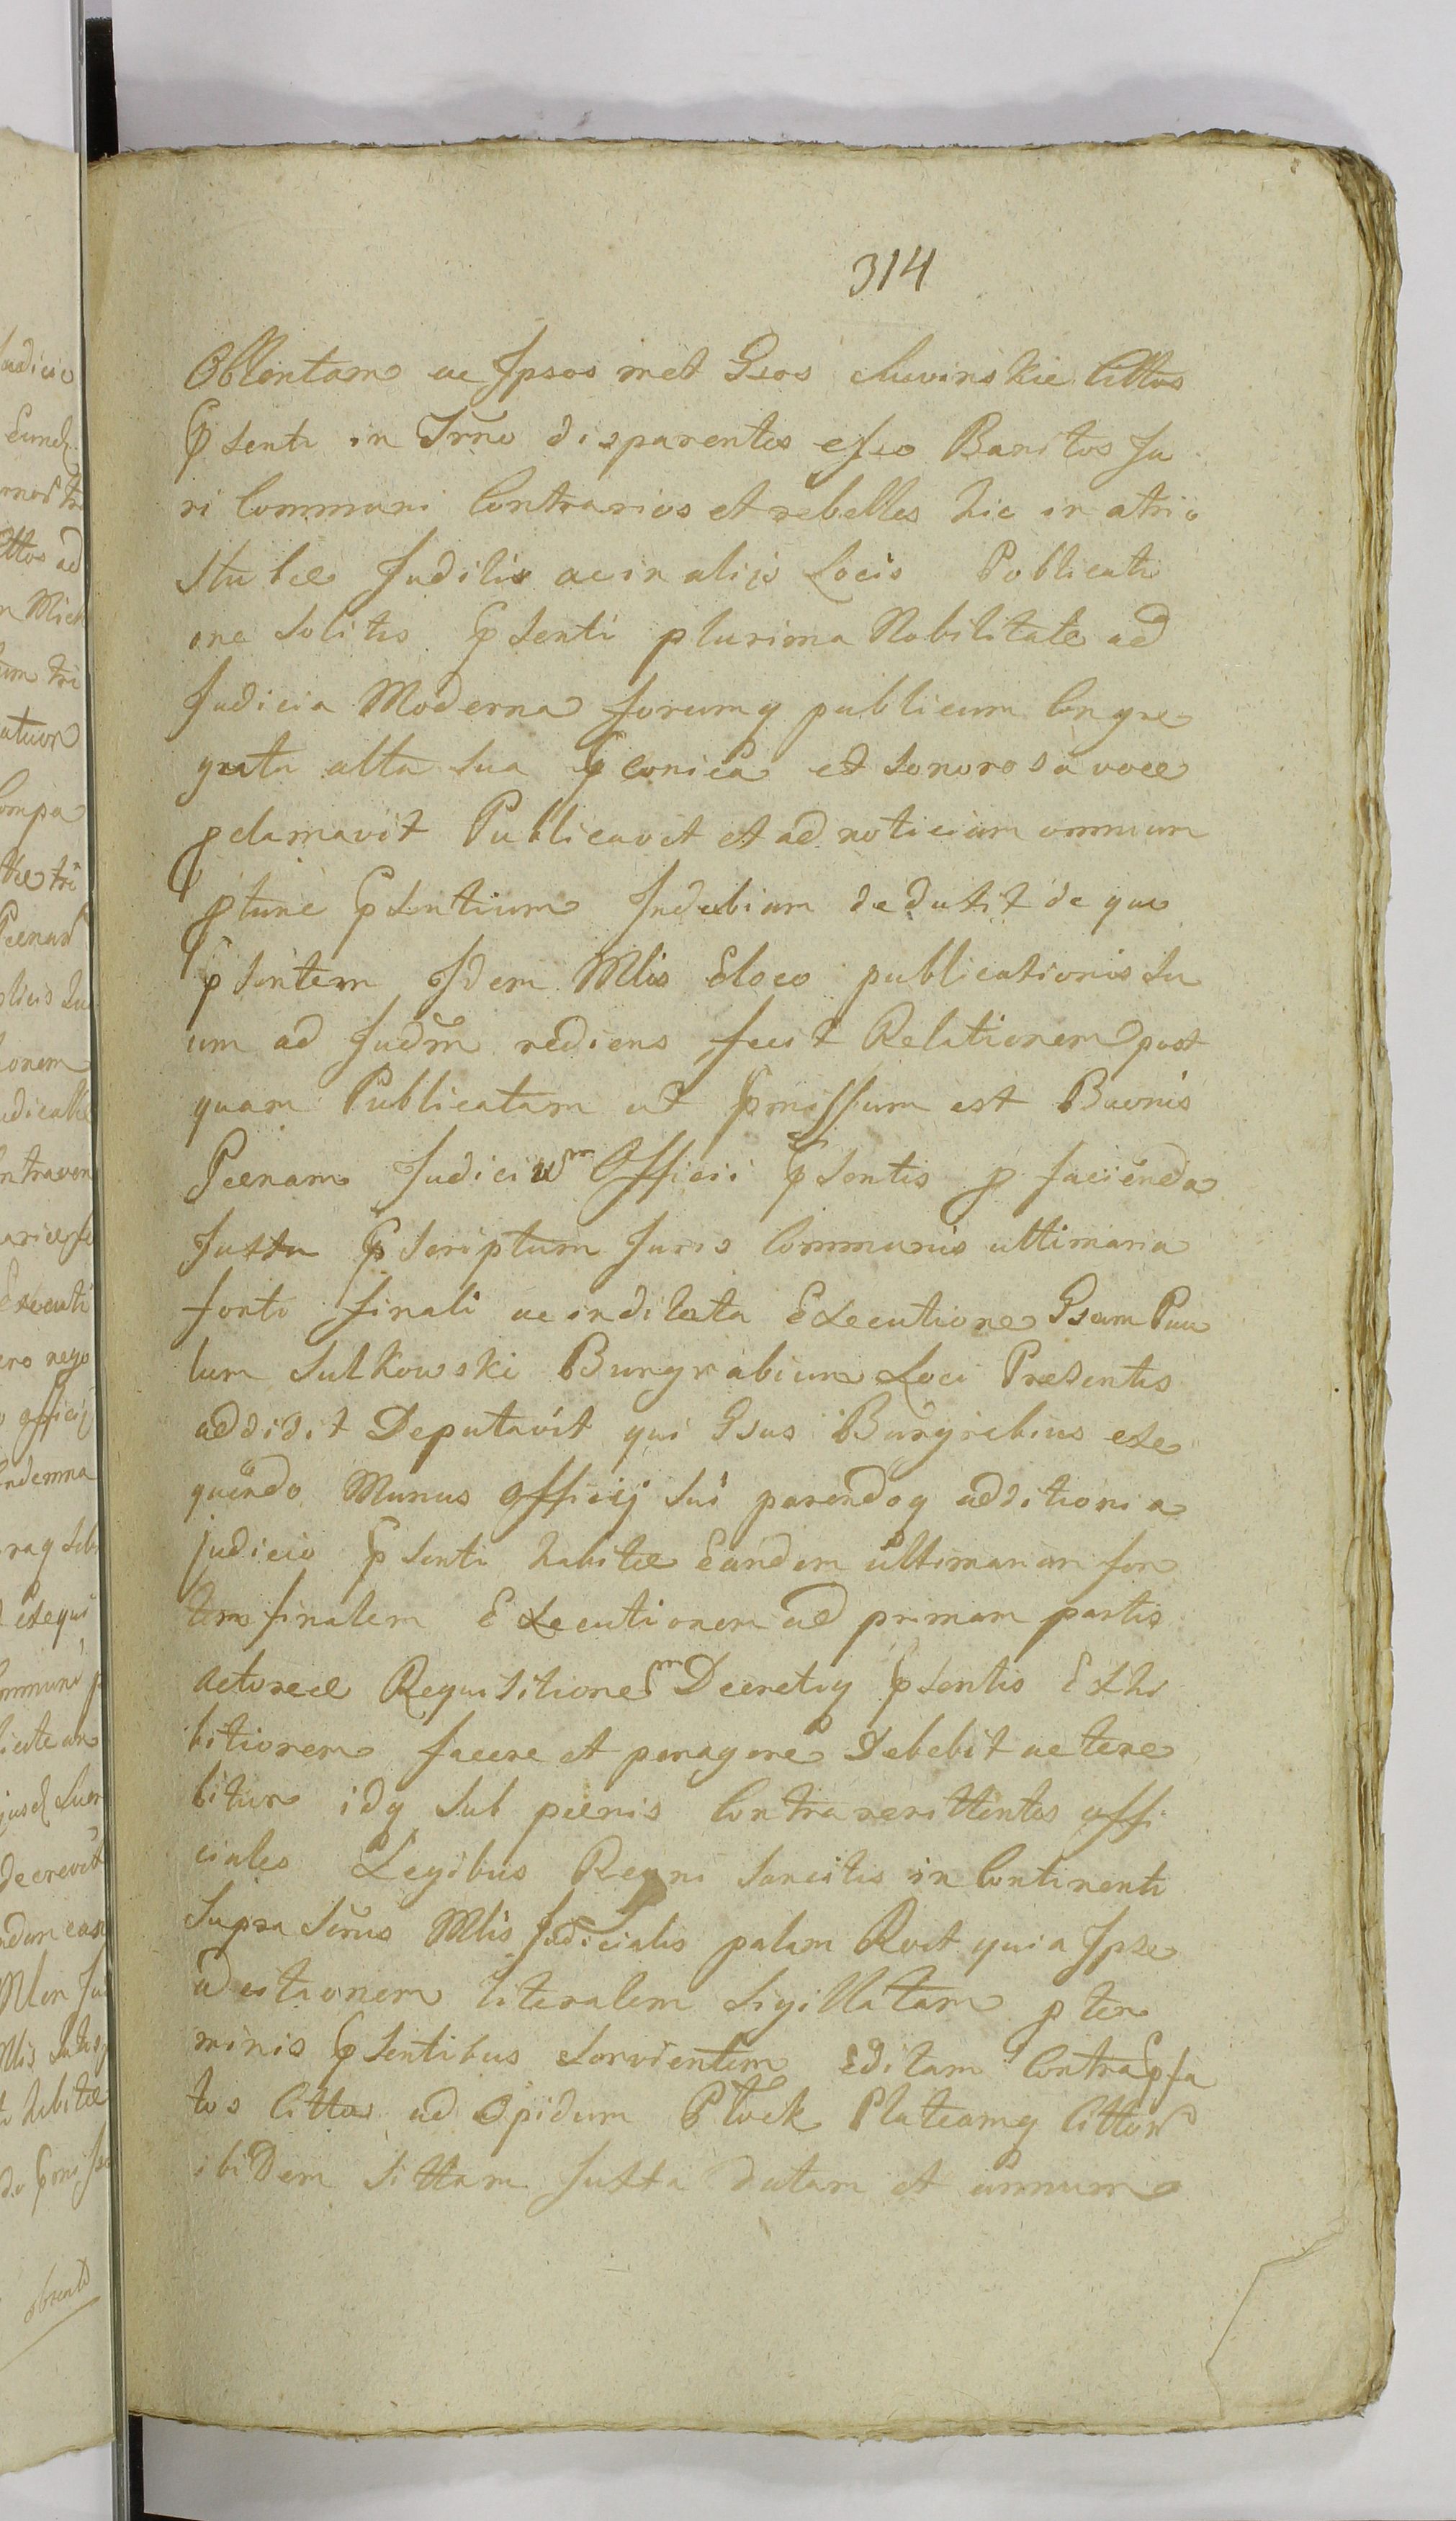 314
Obtentam ac Ipsos met Gsos Chuvinskie Cittos
Psenti in Trno disparentes esse Banitos Ju
ri Communi Contrarios et rebelles hic in atrio
Stubæ Judilis ac in alijs Locis Publicati
one Solitis Psenti plurima Nobilitate ad
Judicia Moderna forumq publicum Congre
gata alta sua pconica et Sonorosa voce
pclamavit Publicavit et ad noticiam omnium
ptunc Psentium Indubiam deduxit de qua
psentem Idem Mlis Eloco publicationis Su
um ad Judm rediens fecit Relationem post
quam Publicatam ut Pmissum est Baonis
Pœnam Judicium Officii Psentis p facienda
Juxta Pscriptum Juris Communis ultimaria
forti finali ac indilata Executione Gsum Pau
lum Sulkowski Burgrabium Loci Presentis
addidit Deputavit qui Gsus Burgrabius exe
quendo Munus officij Sui parendoq additioni a
judicio Psenti habitæ Eandem ultimariam for
tem finalem Executionem ad primam partis
Actoreæ Requisitionem Decretiq Psentis Exhi
bitionem facere et peragere Debebit ac tene
bitur idq Sub pœnis Contra renittentes offi
ciales Legibus Regni Sancitis in Continenti
Supra Scrius Mlis Judicialis palam Rcvit quia Ipse
Citaonem literalem Sigillatam p ter
minis Psentibus Servientem Editam Contra Pfa
tos Cittos ad Opidum Płock Plateamq Cittor
ibidem Sittam Juxta datam et annum